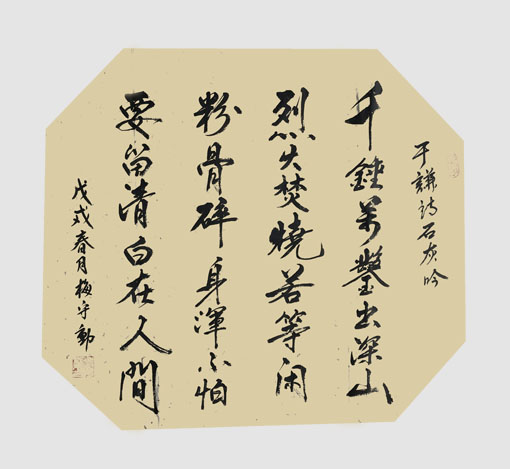 于謙詩石灰吟
千錘萬鑿出深山
烈火焚燒若等闲
粉骨碎身渾不怕
要留清白在人間
戊戌春月梅守勤